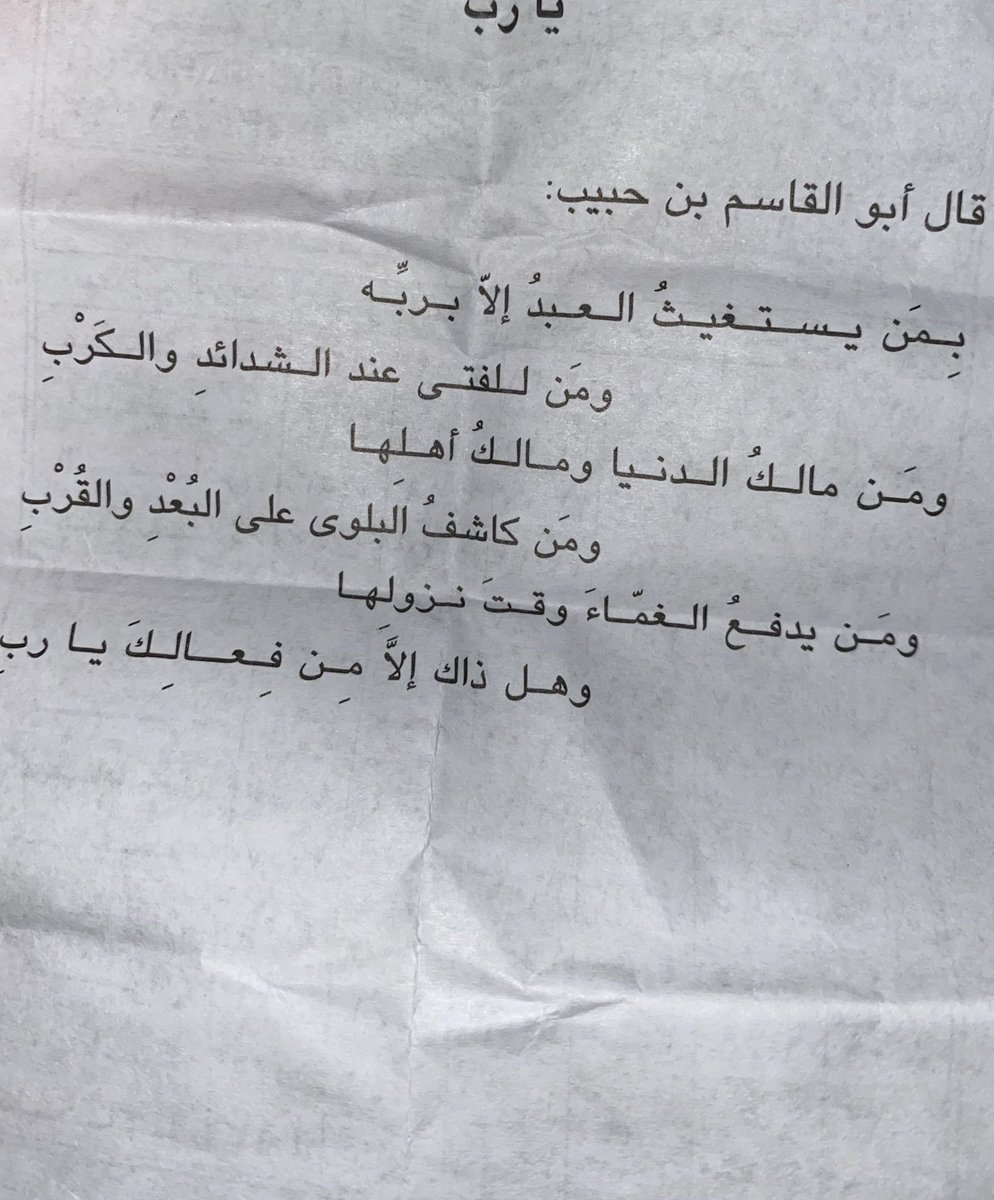 يا رب
قال أبو القاسم بن حبيب:
بِمَن يستغيثُ العبدُ إلاّ بربِّه
ومَن للفتى عند الشدائدِ والكَرْبِ
ومَن مالكُ الدنيا ومالكُ أهلِها
ومَن كاشفُ البلوى على البُعْدِ والقُرْبِ
ومَن يدفعُ الغمّاءَ وقتَ نزولِها
وهل ذاك إلاَّ مِن فِعالِكَ يا ربِ